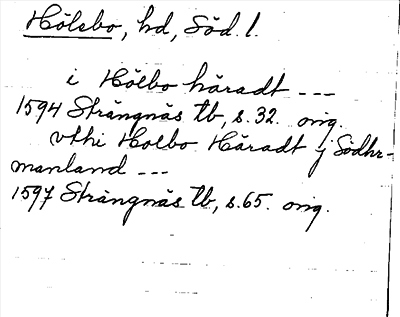 Hölebo, hd, Söd. l.
i Hölbo häradt ---
1594 Strängnäs tb, s. 32. orig.
vthi Holbo Häradt j Södhr-
manland ---
1597 Strängnäs tb, s. 65. orig.